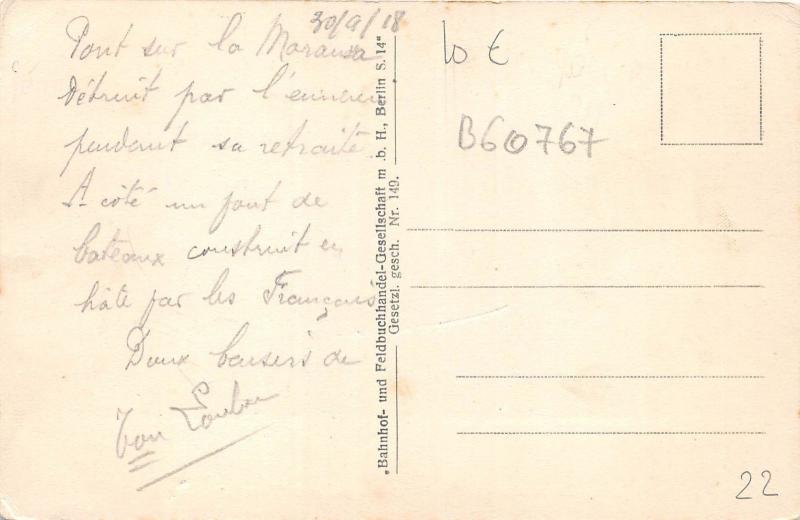 30/9/18
Pont sur la
Détruit par l'ennemi
pendant sa retraite
A côté un pont de
bateaux construit en
hâte par les Français
Doux baisers de
Ton
„Bahnhof- und Feldbuchhandel-Gesellschaft m. b. H., Berlin S. 14“
Gesetzl. gesch. Nr. 149.
10 €
B60767
22